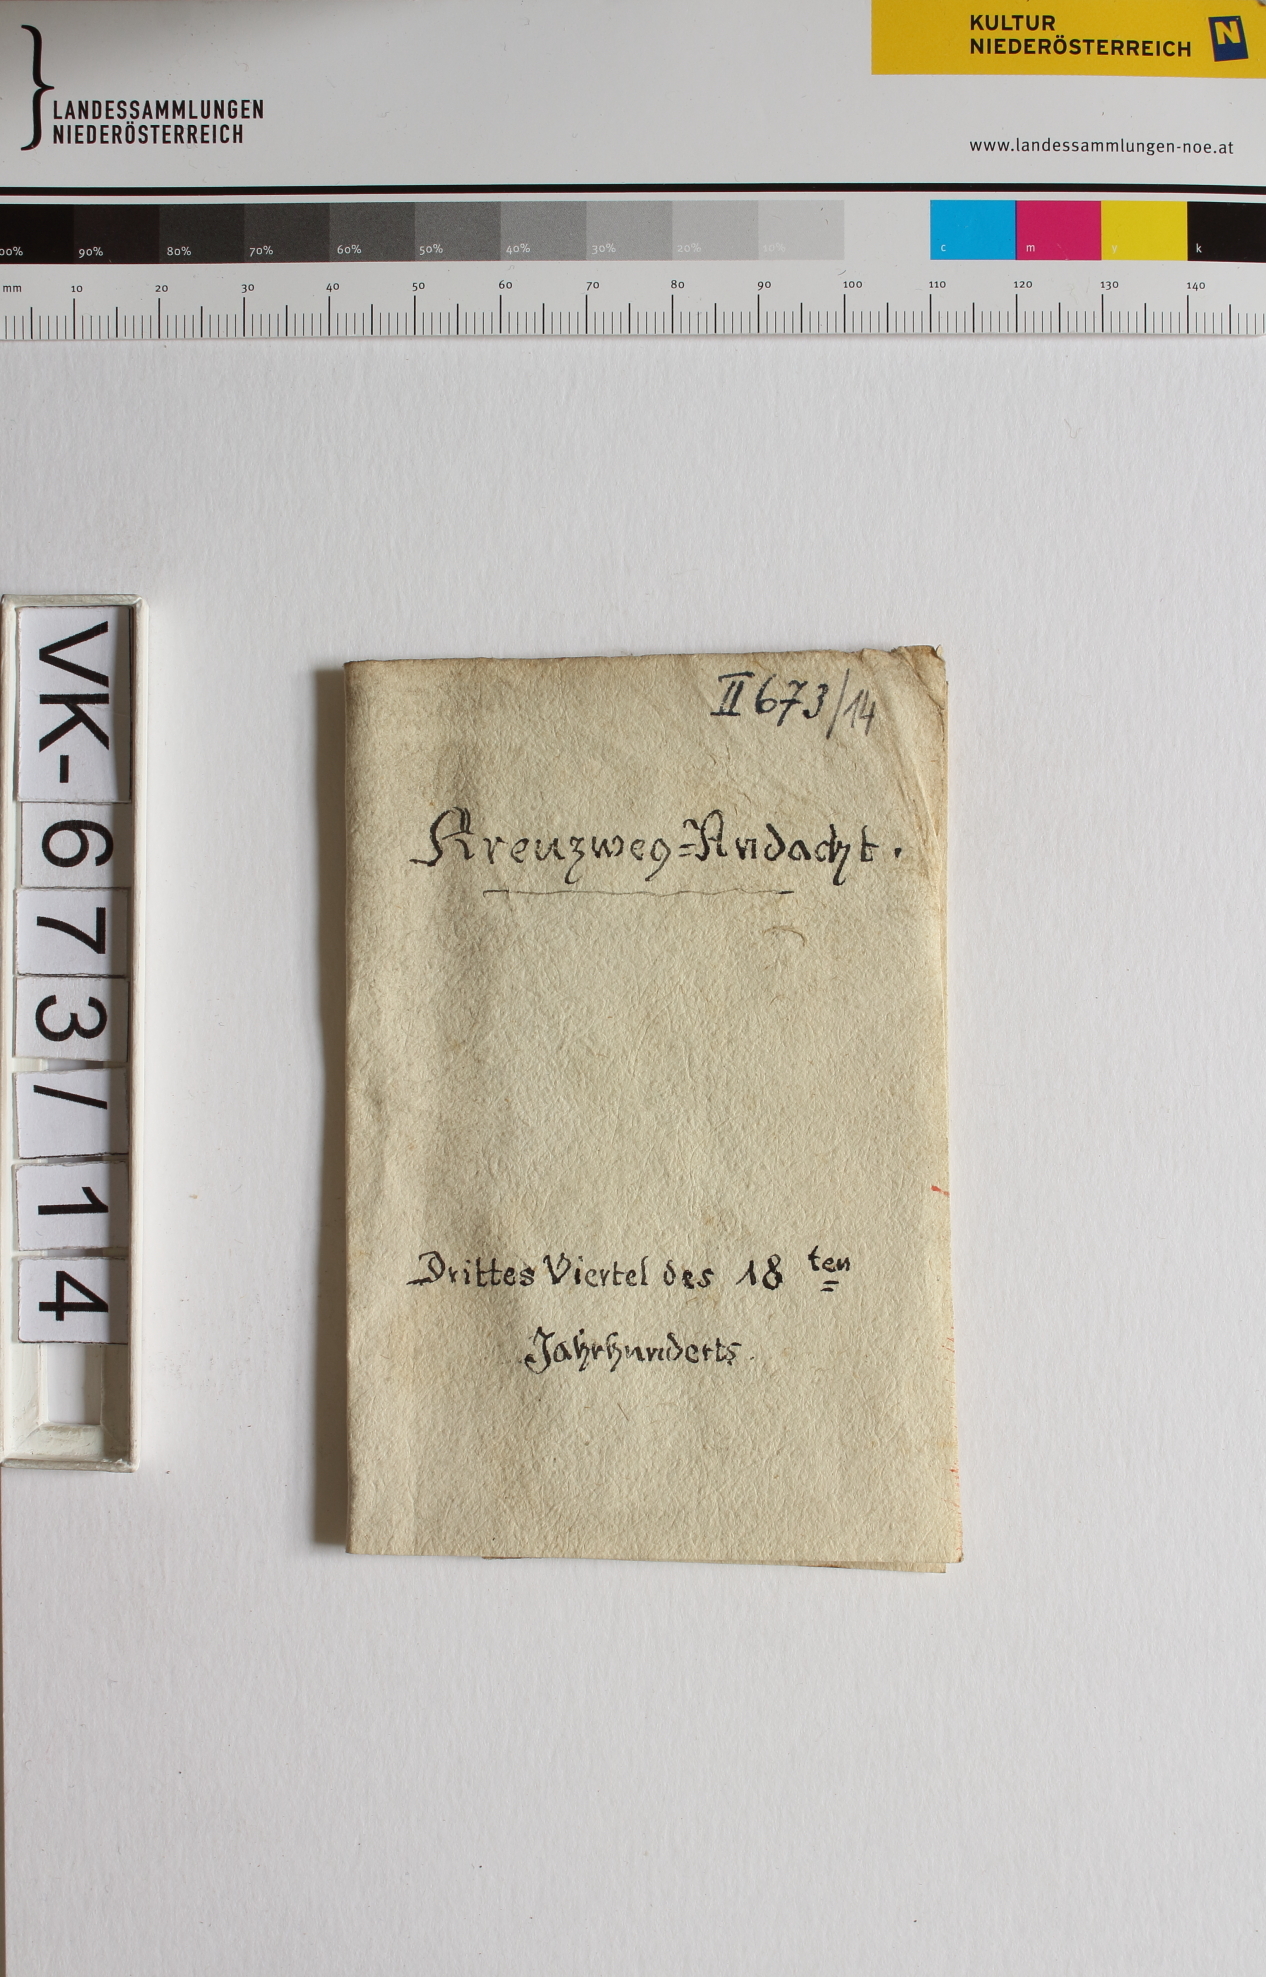 KULTUR
NIEDERÖSTERREICH
N
LANDESSAMMLUNGEN
NIEDERÖSTERREICH
www.landessammlungen-noe.at
00% 90% 80% 70% 60% 50% 40% 30% 20% 10% c m y k
mm 10 20 30 40 50 60 70 80 90 100 110 120 130 140
VK-673/14
II 673/14
Kreuzweg=Andacht.
Drittes Viertel des 18 ten
Jahrhunderts.